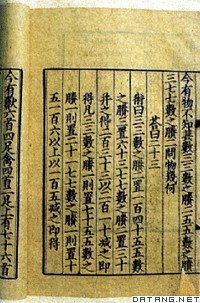 今有物不知其數三三數之賸二五五數之賸
三七七數之賸二問物幾何
荅曰二十三
術曰三三數之賸二置一百四十五五數
之賸三置六十三七七數之賸二置三十
并之得二百三十三以二百一十減之即
得凡三三數之賸一則置七十五五數之
賸一則置二十一七七數之賸一則置十
五一百六以上以一百五減之即得
今有獸六首四足禽四首二足上有七十六首
DATANG.NET